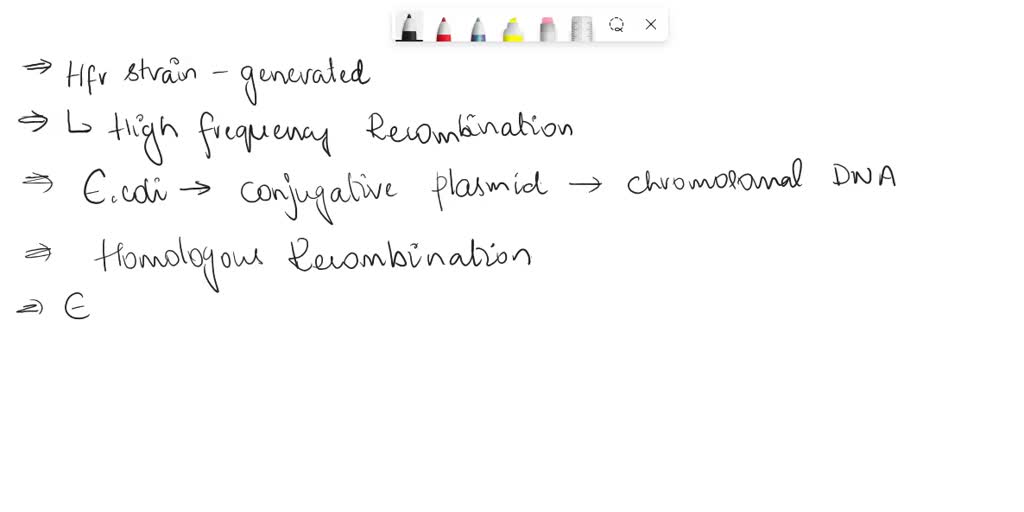 ⇒ Hfr strain - generated
⇒ ↳ High frequency Recombination
⇒ E.coli → conjugative plasmid → chromosomal DNA
⇒ Homologous Recombination
⇒ E